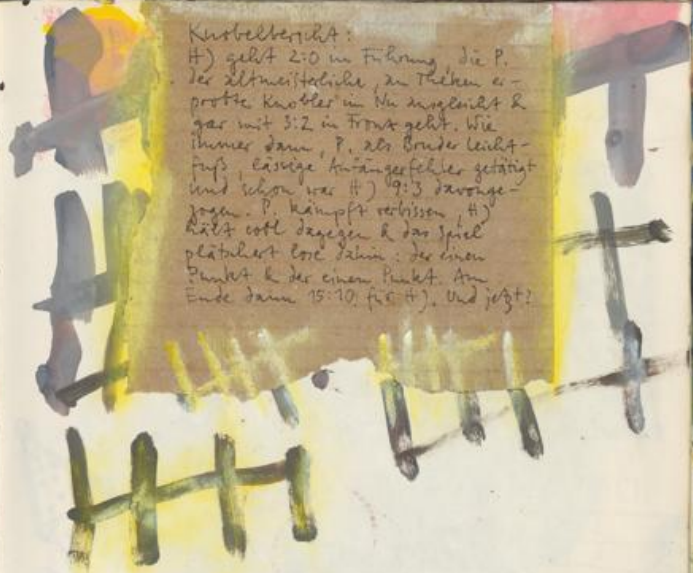 Knobelbericht:
H) geht 2:0 in Führung, die P.
der altmeisterliche, an Theken er-
probte Knobler im Nu ausgleicht &
gar mit 3:2 in Front geht. Wie
immer dann, P. als Bruder Leicht-
fuß, lässige Anfängerfehler getätigt
und schon war H) 9:3 davonge-
zogen. P. kämpft verbissen, H)
hält cool dagegen & das Spiel
plätschert lose dahin: der einen
Punkt & der einen Punkt. Am
Ende dann 15:10 für H). Und jetzt?